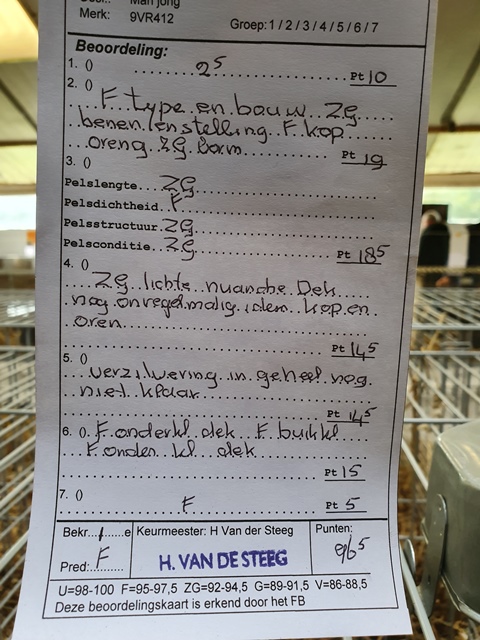 Man jong
Merk: 9VR412
Groep: 1 / 2 / 3 / 4 / 5 / 6 / 7
Beoordeling:
1. () 2⁵ Pt 10
2. ()
F type en bouw ZG
benen/enstelling F kop
oren ZG Pt 19
3. ()
Pelslengte ZG
Pelsdichtheid F
Pelsstructuur ZG
Pelsconditie ZG Pt 18⁵
4. ()
ZG lichte nuanche Dek
nog onregelmatig idem kop en
oren
Pt 14⁵
5. ()
verzilvering in geheel nog
niet klaar
Pt 14⁵
6. () F onderkl dek F buikkl
F onder kl dek
Pt 15
7. ()
F Pt 5
Bekr...1...e Keurmeester: H Van der Steeg Punten:
Pred: F H. VAN DE STEEG 96⁵
U=98-100 F=95-97,5 ZG=92-94,5 G=89-91,5 V=86-88,5
Deze beoordelingskaart is erkend door het FB